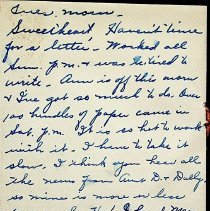 Tues. morn –
Sweetheart, Haven't time
for a letter – Worked all
Sun. p.m. & was so tired to
write – Ann is off this morn
& I've got so much to do. Over
100 bundles of paper came in
Sat. p.m. It is so hot to work
with it. I have to take it
slow. I think you hear all
the news from Aunt D. & Dolly
so mine is more or less